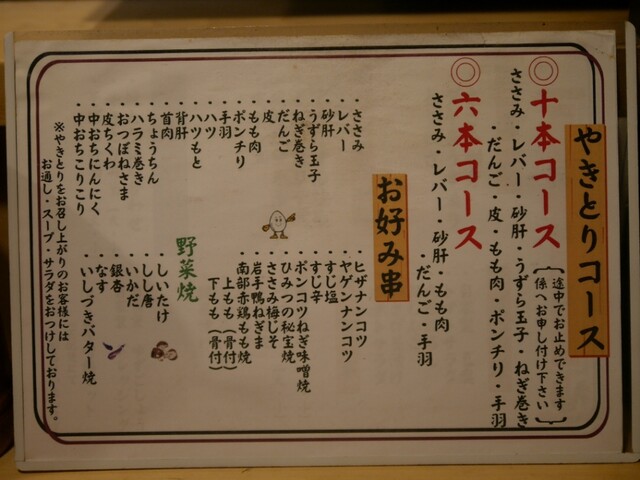 やきとりコース
◎十本コース
途中でお止めできます
係へお申し付け下さい
ささみ・レバー・砂肝・うずら玉子・ねぎ巻き
・だんご・皮・もも肉・ボンチリ・手羽
◎六本コース
ささみ・レバー・砂肝・もも肉
・だんご・手羽
お好み串
・ささみ
・レバー
・砂肝
・うずら玉子
・ねぎ巻き
・だんご
・皮
・もも肉
・ボンチリ
・手羽
・ハツ
・ハツもと
・背肝
・首肉
・ちょうちん
・ハラミ巻き
・おつぼねさま
・皮ちくわ
・中おちにんにく
・中おちこりこり
・ヒザナンコツ
・ヤゲンナンコツ
・すじ塩
・すじ辛
・ボンコツねぎ味噌焼
・ひみつの秘宝焼
・ささみ梅じそ
・岩手鴨ねぎま
・南部赤鶏もも焼
上もも(骨付)
下もも(骨付)
野菜焼
・しいたけ
・しし唐
・いかだ
・銀杏
・なす
・いしづきバター焼
※やきとりをお召し上がりのお客様には
お通し・スープ・サラダをおつけしております。